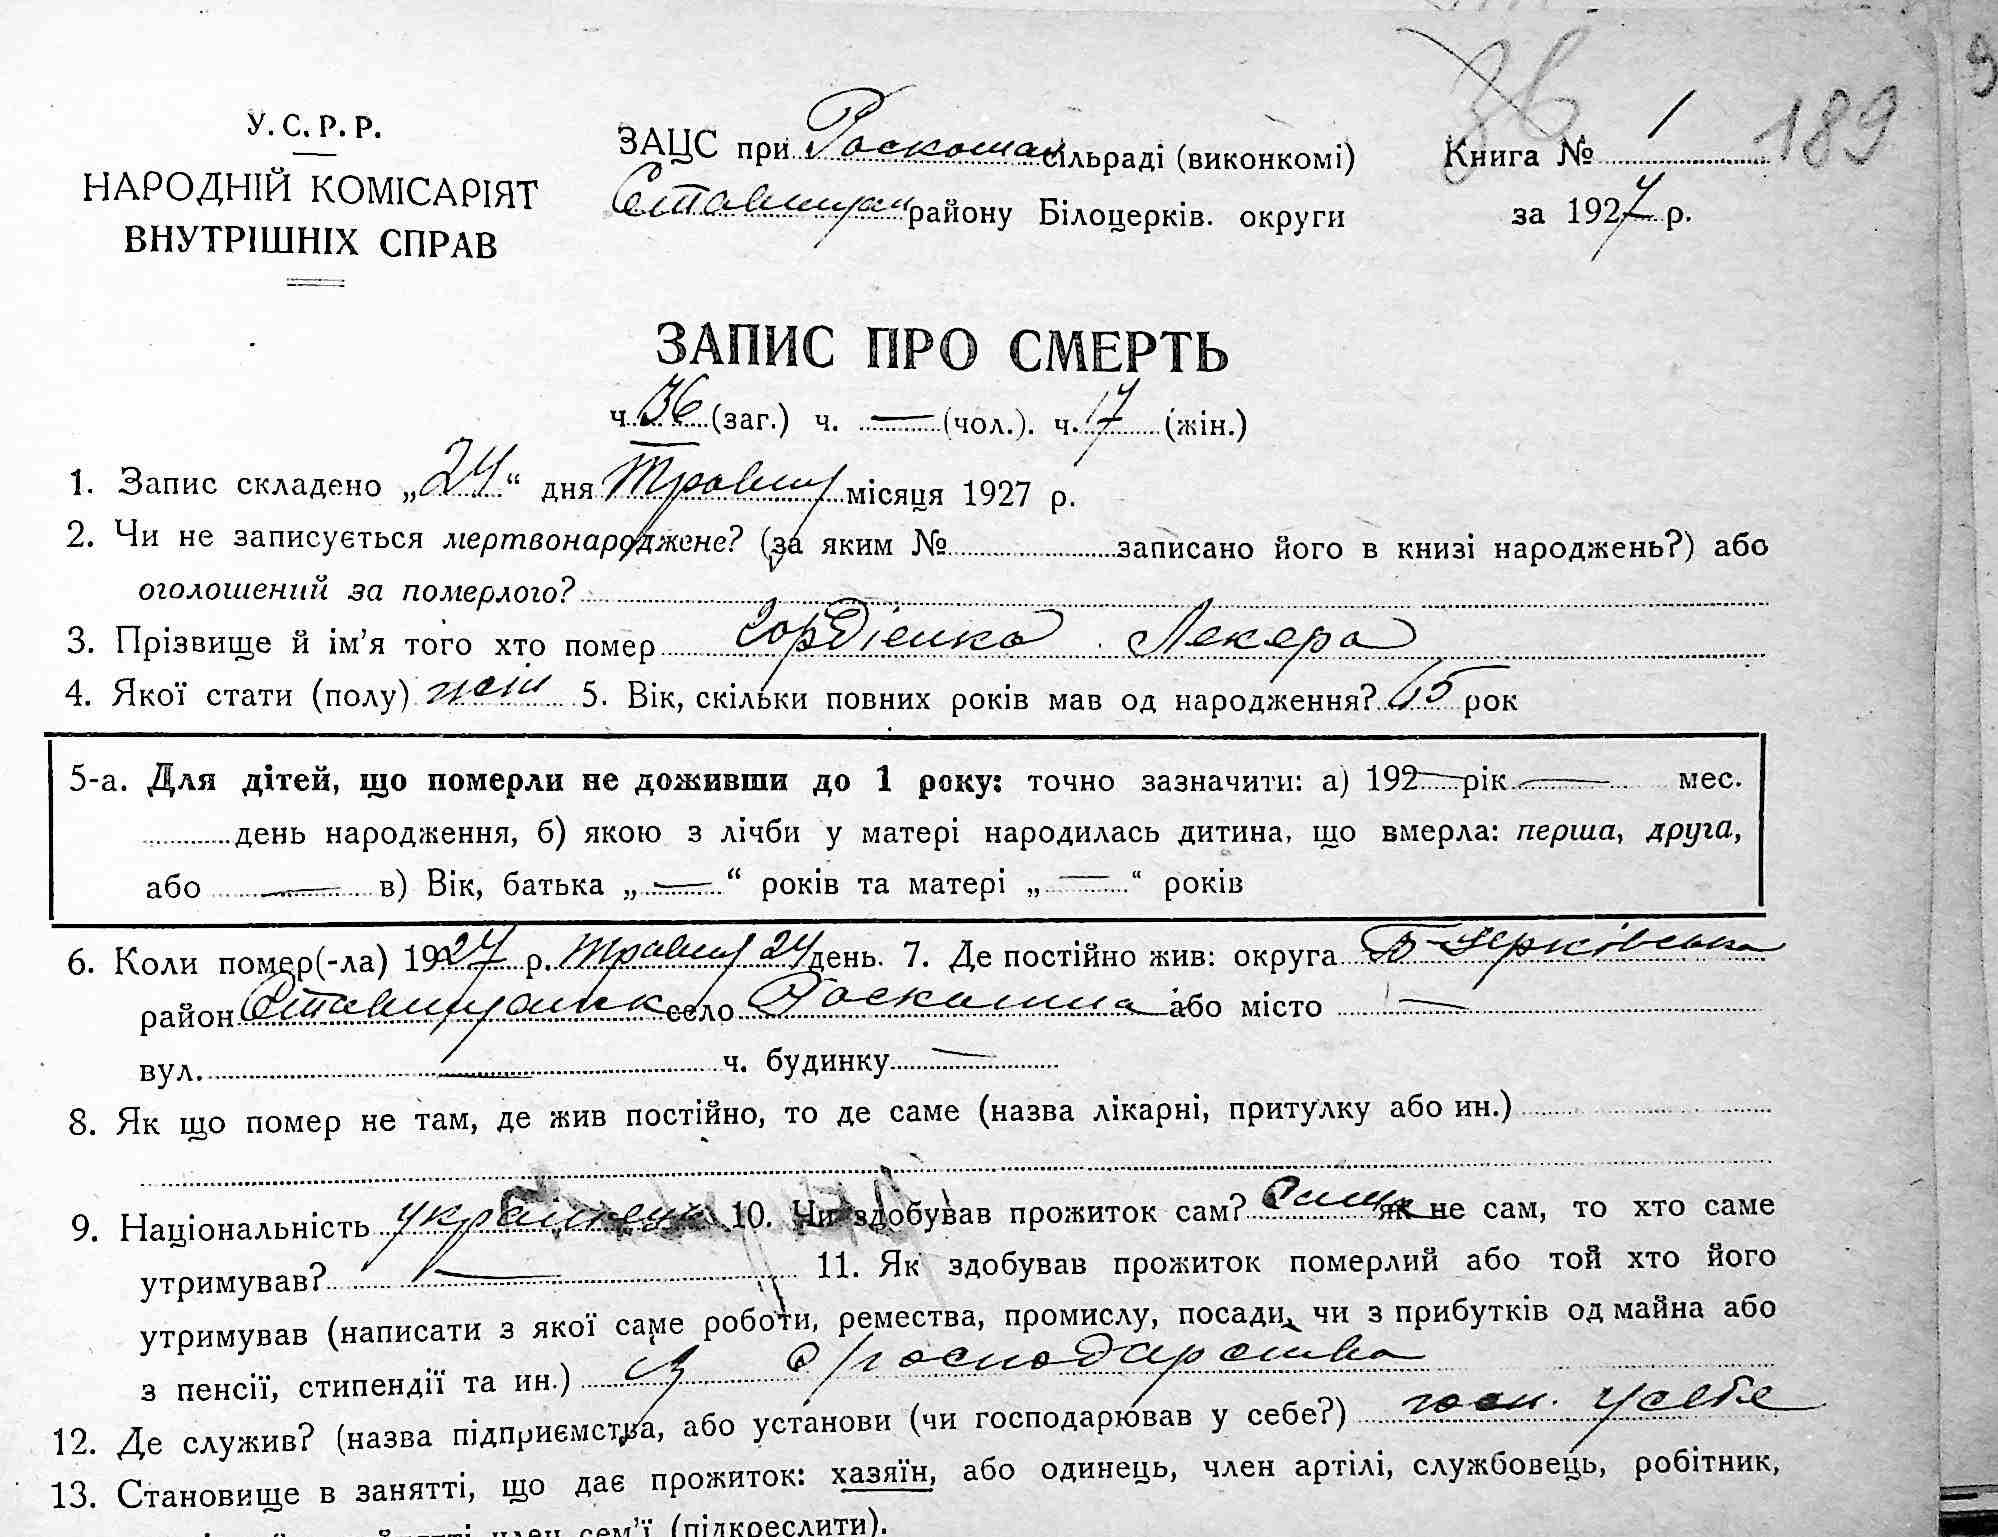 36
189
У. С. Р. Р.
НАРОДНІЙ КОМІСАРІЯТ
ВНУТРІШНІХ СПРАВ
ЗАЦС при Роскошан сільраді (виконкомі)
Ставищан району Білоцерків. округи
Книга № 1
за 1927 р.
ЗАПИС ПРО СМЕРТЬ
ч. 36 (заг.) ч. — (чол.). ч. 17 (жін.)
1. Запис складено „24“ дня Травня місяця 1927 р.
2. Чи не записується мертвонароджене? (за яким № записано його в книзі народжень?) або
оголошений за померлого?
3. Прізвище й ім'я того хто помер Гордієнко Лекера
4. Якої стати (полу) жін 5. Вік, скільки повних років мав од народження? 65 рок
5-а. Для дітей, що померли не доживши до 1 року: точно зазначити: а) 192— рік — мес.
день народження, б) якою з лічби у матері народилась дитина, що вмерла: перша, друга,
або — в) Вік, батька „—“ років та матері „—“ років
6. Коли помер(-ла) 1927 р. Травня 24 день. 7. Де постійно жив: округа Б-Церківська
район Ставищанск село Роскошна або місто —
вул. — ч. будинку —
8. Як що помер не там, де жив постійно, то де саме (назва лікарні, притулку або ин.)
9. Національність українець 10. Чи здобував прожиток сам? Сама як не сам, то хто саме
утримував? — 11. Як здобував прожиток померлий або той хто його
утримував (написати з якої саме роботи, ремества, промислу, посади, чи з прибутків од майна або
з пенсії, стипендії та ин.) з господарства
12. Де служив? (назва підприємства, або установи (чи господарював у себе?) госп. у себе
13. Становище в занятті, що дає прожиток: хазяїн, або одинець, член артілі, службовець, робітник,
член сем'ї (підкреслити).